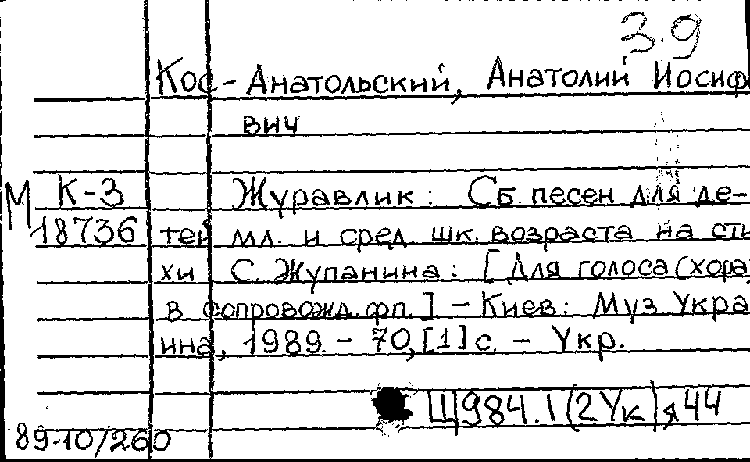 3.9
Кос-Анатольский, Анатолий Иосиф
вич
М К-3 Журавлик: Сб. песен для де-
18736 тей мл. и сред. шк. возраста на сти
хи С. Жупанина: [Для голоса (хора)
в сопровожд. фп.] – Киев: Муз. Укра
ина, 1989. – 70,[1] с. – Укр.
Щ984.1(2Ук)я44
89-10/260